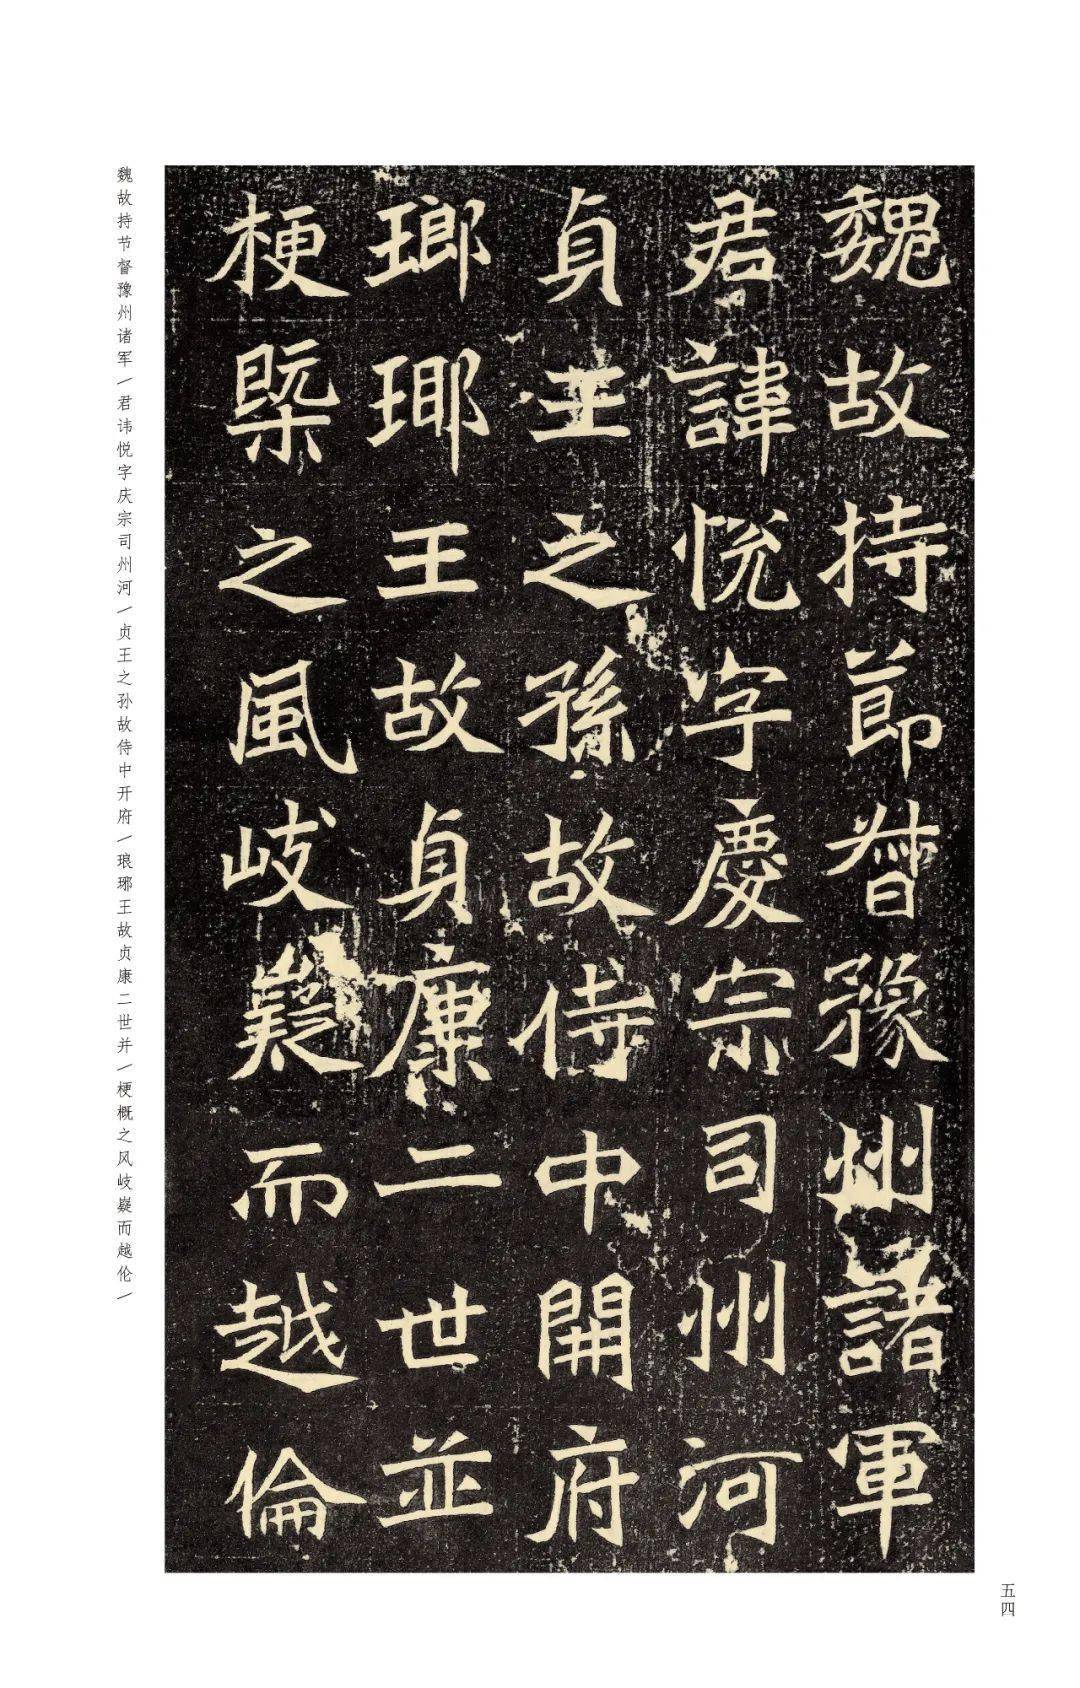 魏故持節督豫州諸軍
君諱悅字慶宗司州河
貞王之孫故侍中開府
瑯瑘王故貞康二世並
梗槩之風岐嶷而越倫
魏故持节督豫州诸军/君讳悦字庆宗司州河/贞王之孙故侍中开府/琅琊王故贞康二世并/梗概之风岐嶷而越伦/
五四